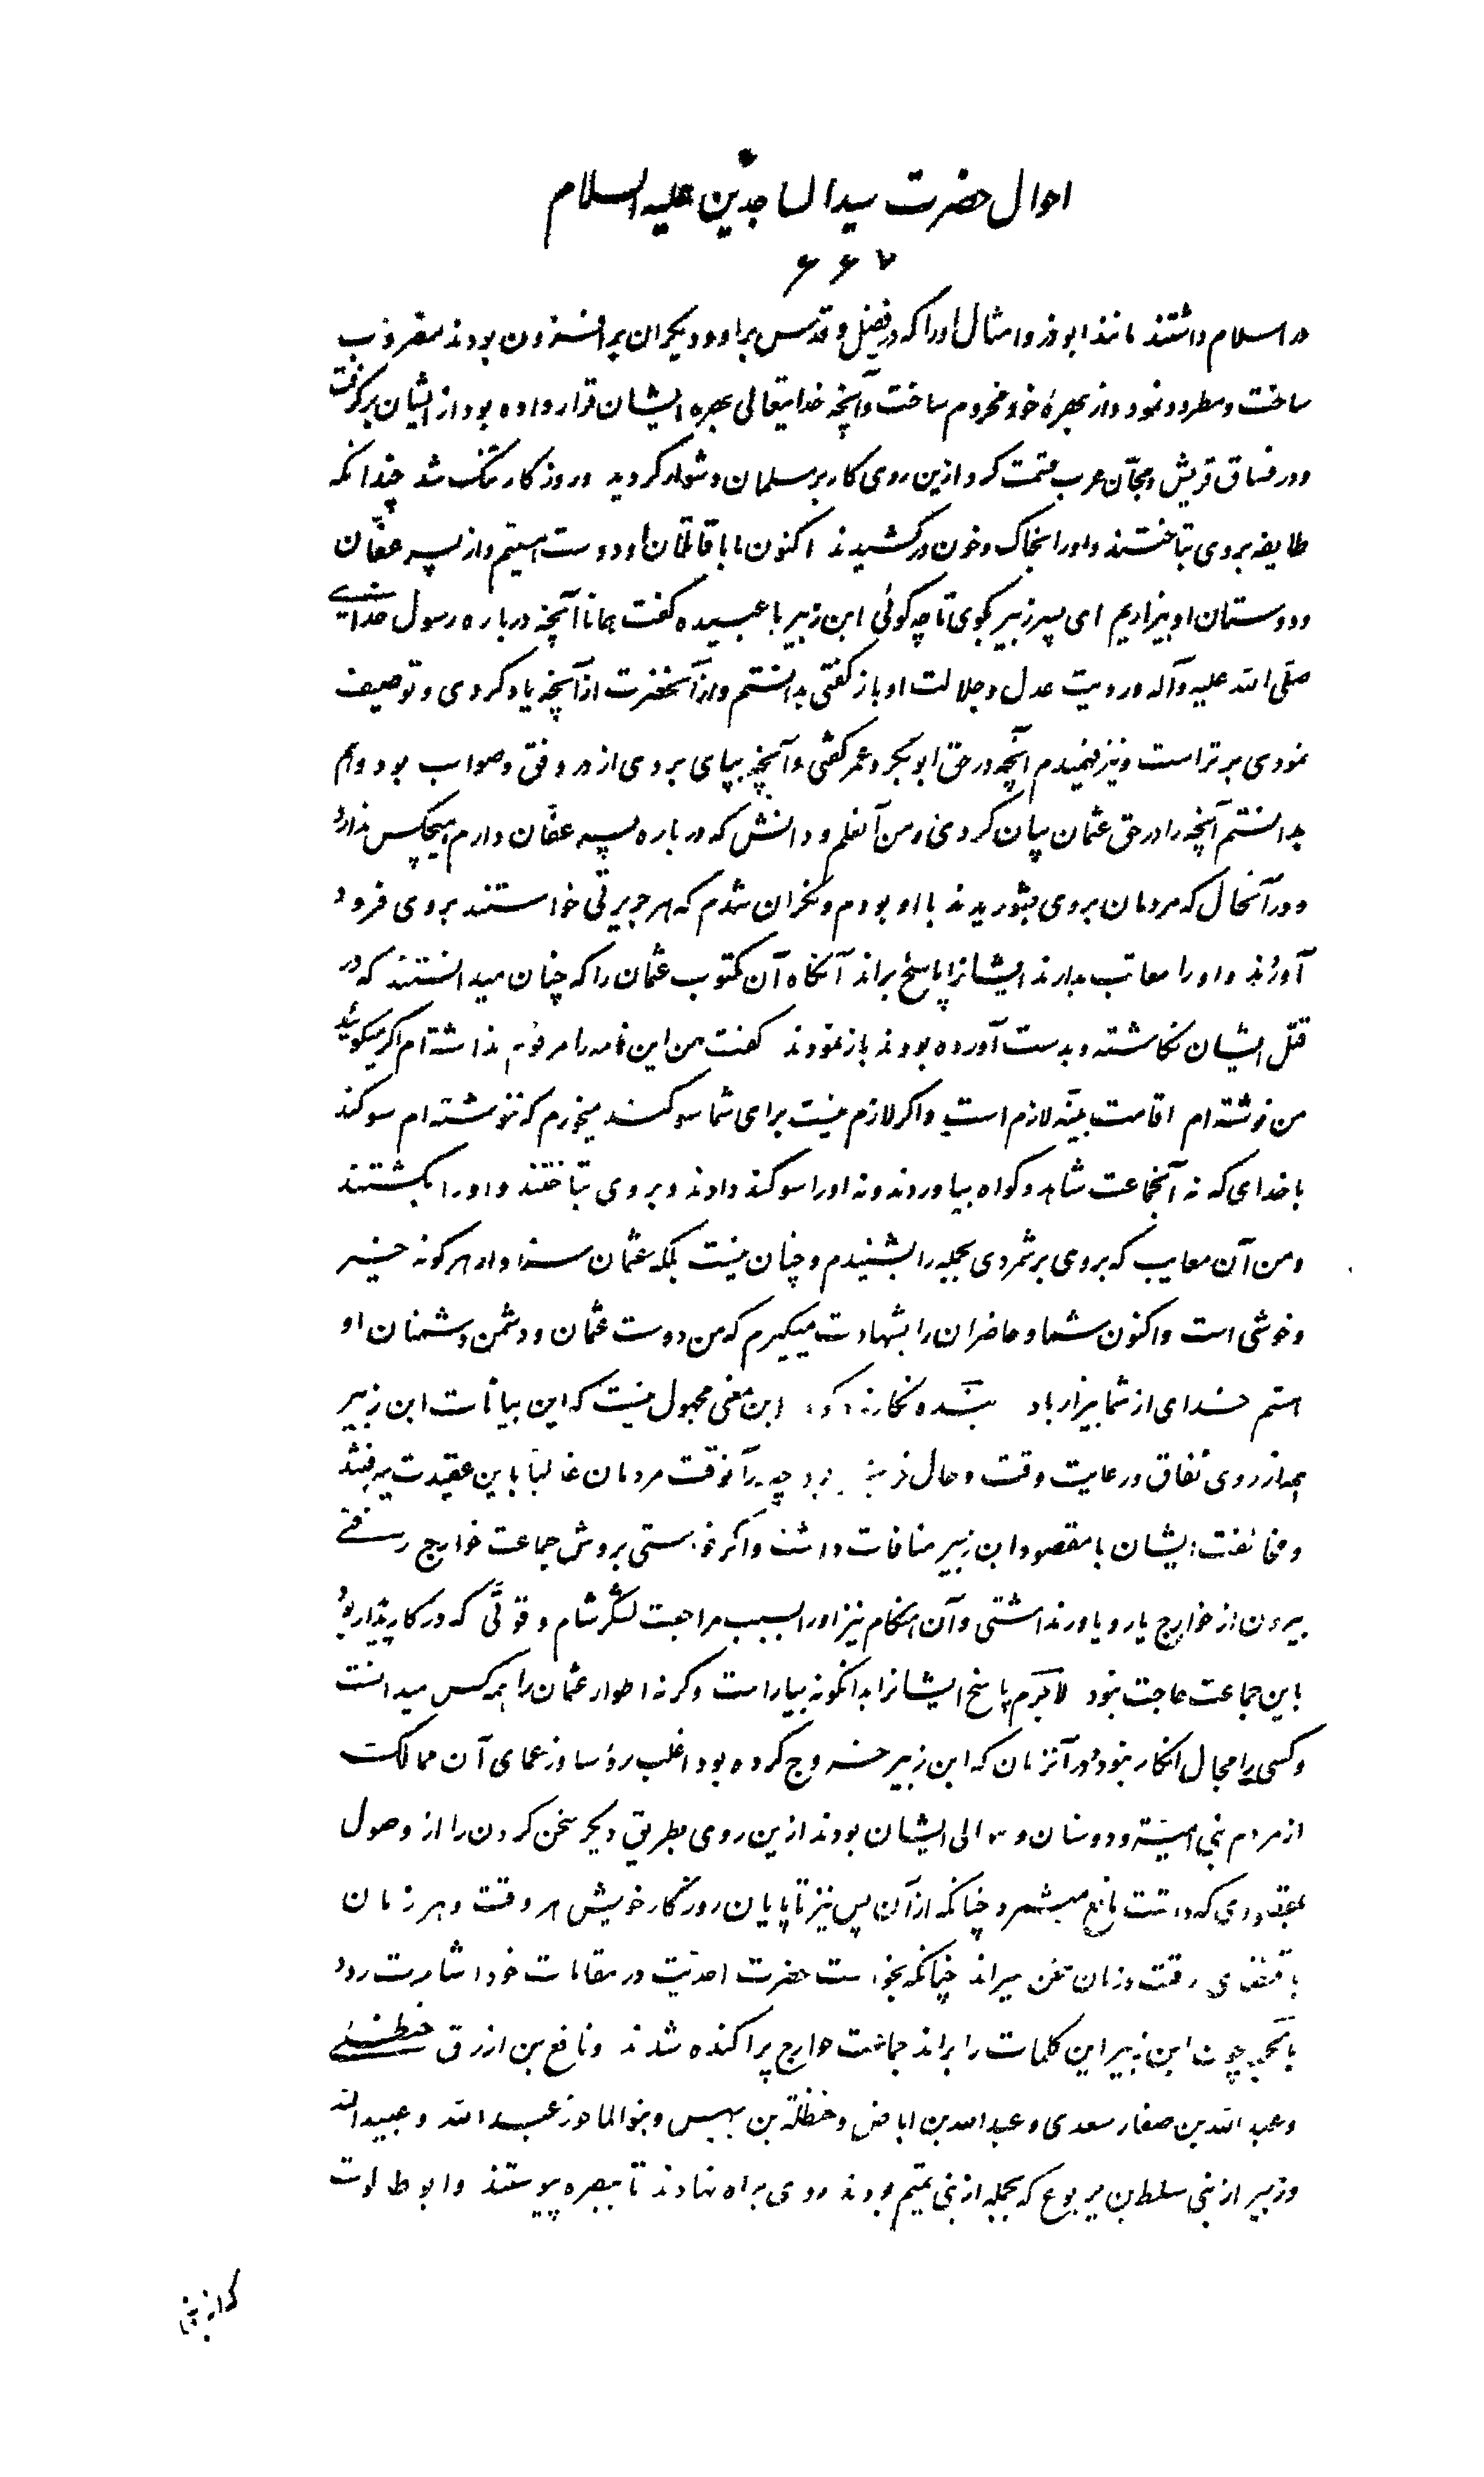 احوال حضرت سیدالساجدین علیه السلام
۶۶۷
در اسلام داشتند مانند ابوذر و امثال او را که در فضل و تقدس بر او و دیگران برافزون بودند مضروب
ساخت و مطرود نمود و از بهرهٔ خود محروم ساخت و آنچه خدایتعالی بهره ایشان قرار داده بود از ایشان برگرفت
و در فساق قریش و مجان عرب قسمت کرد و ازین روی کار بر مسلمان دشوار گردید و روزگار تنگ شد چندانکه
طایفه بر وی بتاختند و او را بخاک و خون درکشیدند اکنون ما با قاتلان او دوست هستیم و از پسر عفان
و دوستان او بیزاریم ای پسر زبیر بگوی تا چه گوئی ابن زبیر با عبیده گفت همانا آنچه درباره رسول خدای
صلی الله علیه و آله و رویت عدل و جلالت او بازگفتی بدانستم و آنحضرت از آنچه یاد کردی و توصیف
نمودی برتر است و نیز فهمیدم آنچه در حق ابوبکر و عمر گفتی و آنچه بپای بردی از در وفق و صواب بود و هم
بدانستم آنچه را در حق عثمان بیان کردی و من آنعلم و دانش که درباره پسر عفان دارم هیچکس ندارد
و در آنحال که مردمان بر وی بشوریدند با او بودم و نگران شدم که هر جریرتی خواستند بر وی فرود
آورند و او را معاتب بدارند ایشانرا پاسخ براند آنگاه آن مکتوب عثمان را که چنان میدانستند که در
قتل ایشان نگاشته و بدست آورده بودند باز نمودند گفت من این نامه را مرقوم نداشته ام اگر میگوئید
من نوشته ام اقامت بینه لازم است و اگر لازم نیست برای شما سوگند میخورم که ننوشته ام سوگند
با خدای که نه آنجماعت شاهد و گواه بیاوردند و نه او را سوگند دادند و بر وی بتاختند و او را بکشتند
و من آن معایب که بر وی برشمردی بجمله را بشنیدم و چنان نیست بلکه عثمان سزاوار هر گونه خیر
و خوشی است و اکنون شما و حاضران را بشهادت میگیرم که من دوست عثمان و دشمن دشمنان او
هستم خدای از شما بیزار باد بنده نگارنده گوید این معنی مجهول نیست که این بیانات ابن زبیر
همه از روی نفاق و رعایت وقت و حال بود چه در آنوقت مردمان غالبا باین عقیدت میرفتند
و مخالفت ایشان با مقصود ابن زبیر منافات داشت و اگر خواستی بروش جماعت خوارج رفتی
بیرون از خوارج یار و یاور نداشتی و آن هنگام نیز او را بسبب مراجعت لشگر شام و قوتی که در کار پدیدار بود
باین جماعت حاجت نبود لاجرم پاسخ ایشانرا بدانگونه بیاراست وگرنه اطوار عثمان را همه کس میدانست
و کسی را مجال انکار نبود در آنزمان که ابن زبیر خروج کرده بود اغلب رؤسا و زعمای آن ممالک
از مردم بنی امیه و دوستان و موالی ایشان بودند ازین روی بطریق دیگر سخن کردن را از وصول
بمقصودی که داشت مانع میشمرد چنانکه از آن پس نیز تا پایان روزگار خویش هر وقت و هر زمان
باقتضای وقت و زمان سخن میراند چنانکه بخواست حضرت احدیت در مقامات خود اشارت رود
بالجمله چون ابن زبیر این کلمات را براند جماعت خوارج پراکنده شدند و نافع بن ازرق حنظلی
و عبدالله بن صفار سعدی و عبدالله بن اباض و حنظلة بن بیهس و بنوالماحوز عبدالله و عبیدالله
و زبیر از بنی سلیط بن یربوع که بجمله از بنی تمیم بودند روی براه نهادند تا ببصره پیوستند و ابو طالوت
که از بنی